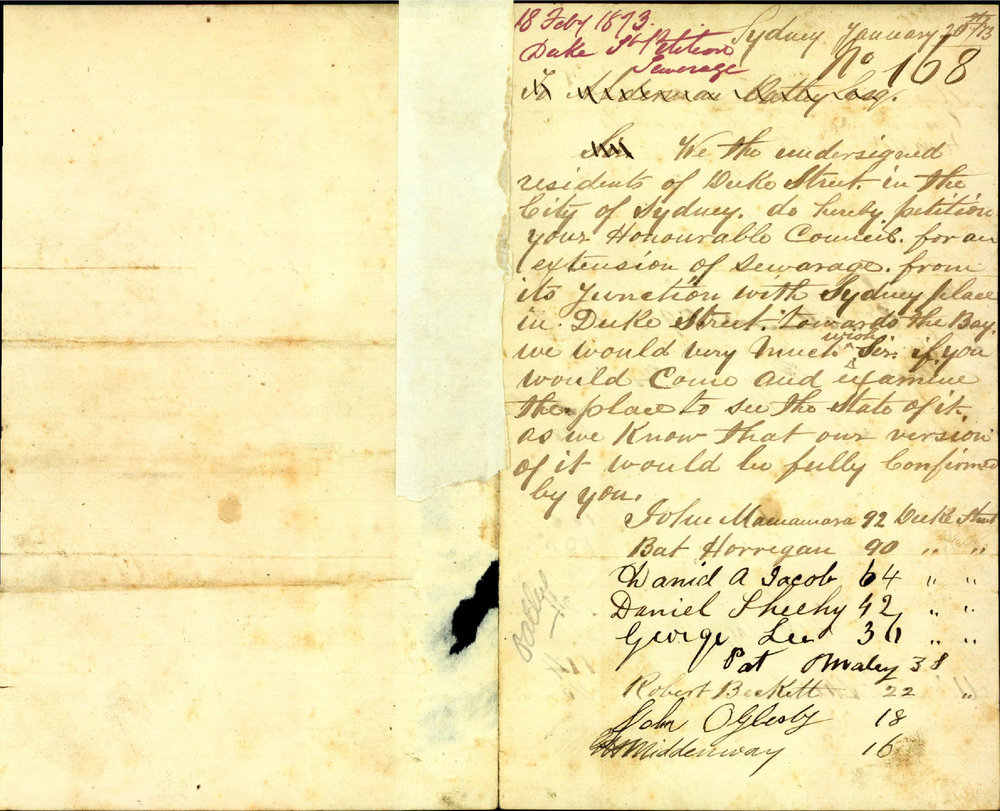 18 Feby 1873.
Duke St Petition
Sewerage
Sydney January 20th/73
No 168
To Alderman Oatley Esq.
Sir We the undersigned
residents of Duke Street. in the
City of Sydney. do hereby petition
your Honourable Council. for an
extension of sewarage. from
its junction with Sydney place
in Duke Street. towards the Bay.
we would very much wish Sir. if you
would Come and examine
the place to see the state of it.
as we Know that our version
of it would be fully Confirmed
by you.
John Macnamara 92 Duke Street
Bat Horrigan 90 " "
Daniel A Jacob 64 " "
Daniel Sheehy 42 " "
George Lee 36 " "
Pat Omaley 38 "
Robert Beckett 22 "
John OGlesby 18
Middenway 16
Oatley